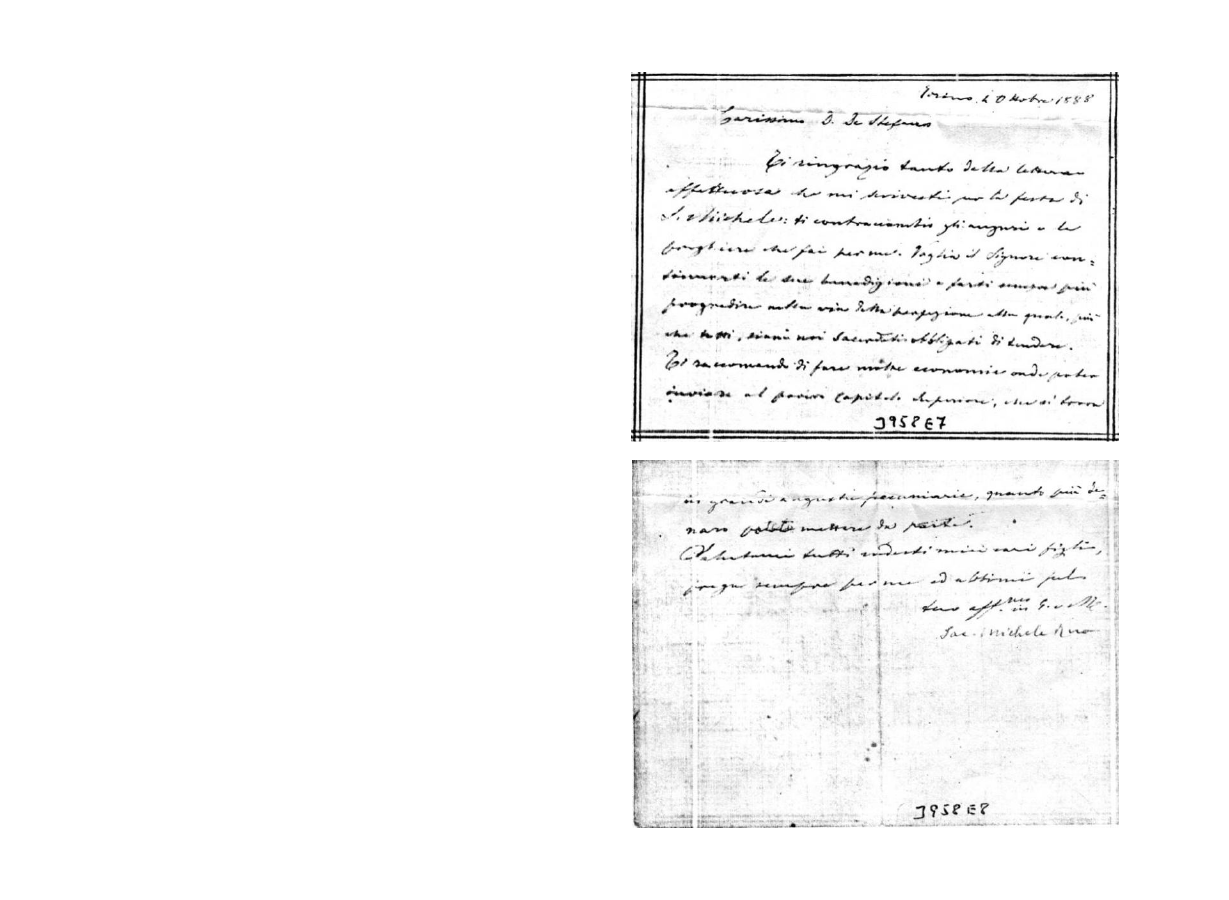 Torino, 2 Ottobre 1888
Carissimo D. De Stefano
Ti ringrazio tanto della lettera
affettuosa che mi scrivesti per la festa di
S. Michele: ti contraccambio gli auguri e le
preghiere che fai per me. Voglia il Signore con=
tinuarti le sue benedizioni e farti sempre più
progredire nella via della perfezione alla quale, più
che tutti, siamo noi Sacerdoti obbligati di tendere.
Ti raccomando di fare molte economie onde poter
inviare al povero Capitolo Superiore, che si trova
J958E7
in grandi angustie pecuniarie, quanto più de=
naro potete mettere da parte.
Salutami tutti codesti miei cari figli,
prega sempre per me ed abbimi pel
tuo aff.mo in G. e M.
Sac. Michele Rua
J958E8